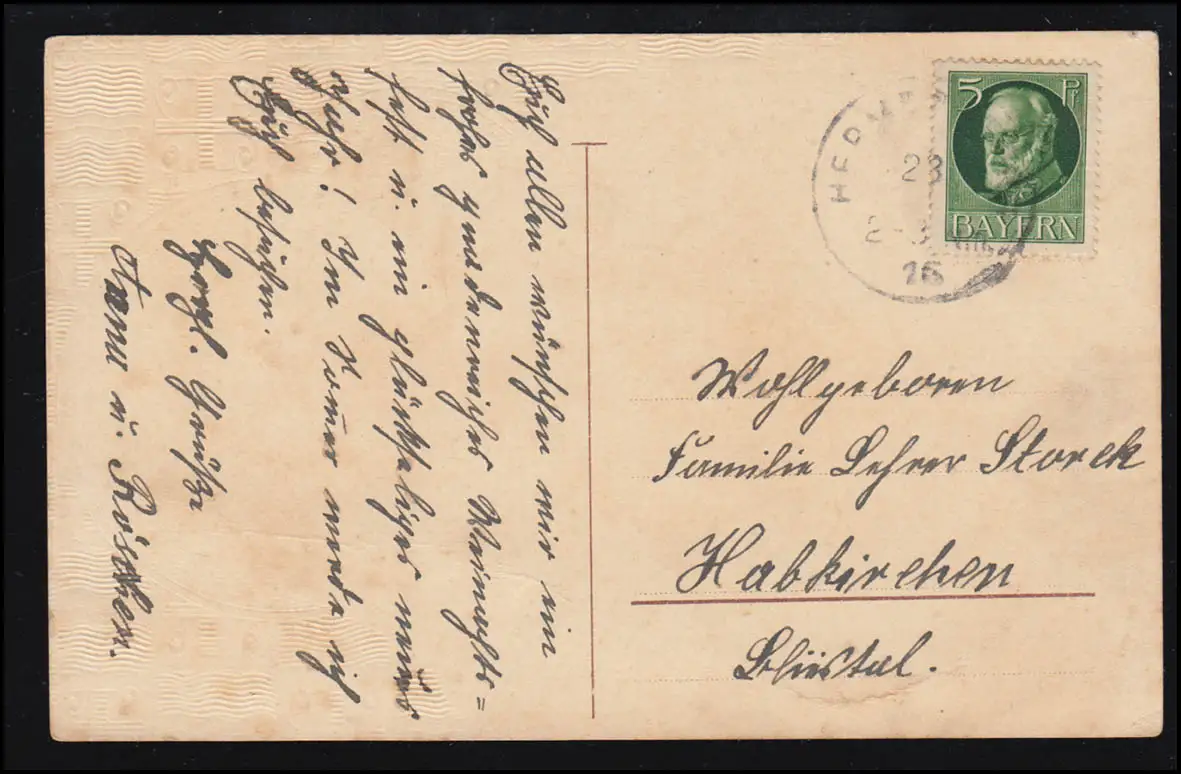 Euch allen wünschen wir ein
frohes gnadenreiches Weinachts=
fest u. ein glückseliges neues
Jahr! Im Sommer werde ich
Euch besuchen.
Herzl. Grüße
Anna u. Röschen.
5 Pf
BAYERN
16
Wohlgeboren
Familie Lehrer Storck
Habkirchen
Bliestal.